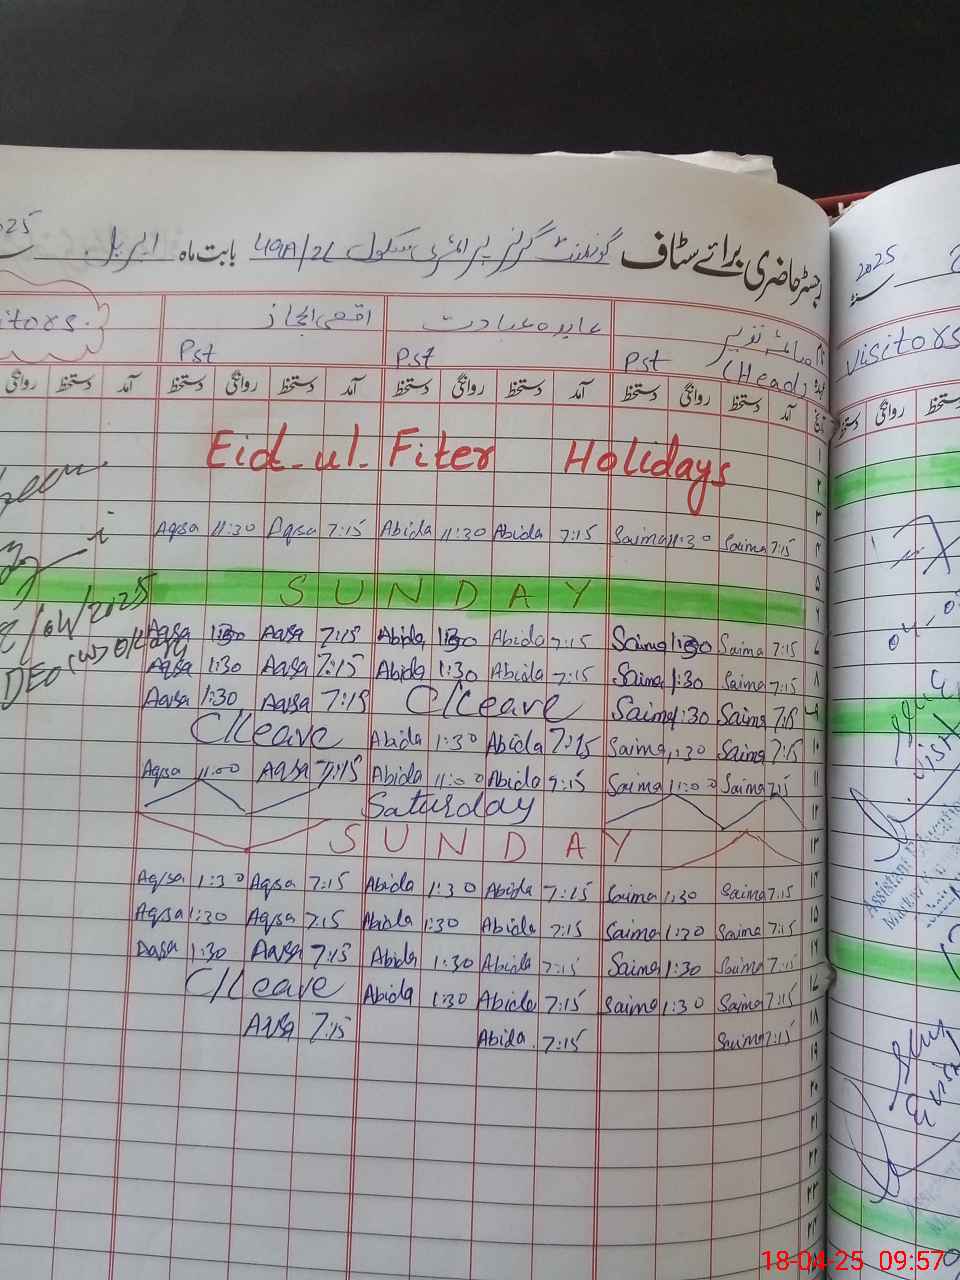 رجسٹر حاضری برائے سٹاف گورنمنٹ گرلز پرائمری سکول 49A/2L بابت ماہ اپریل 2025
صائمہ نذیر (Head) Pst
عابدہ عبادت Pst
اقصیٰ اعجاز Pst
Visitors
آمد دستخط روانگی دستخط آمد دستخط روانگی دستخط آمد دستخط روانگی دستخط آمد دستخط روانگی
Eid-ul-Fiter Holidays
Aqsa 11:30 Aqsa 7:15 Abida 11:30 Abida 7:15 Saima 11:30 Saima 7:15
SUNDAY
Aqsa 1:30 Aqsa 7:15 Abida 1:30 Abida 7:15 Saima 1:30 Saima 7:15
Aqsa 1:30 Aqsa 7:15 Abida 1:30 Abida 7:15 Saima 1:30 Saima 7:15
Aqsa 1:30 Aqsa 7:15 C/Leave Saima 1:30 Saima 7:15
C/Leave Abida 1:30 Abida 7:15 Saima 1:30 Saima 7:15
Aqsa 11:00 Aqsa 7:15 Abida 11:00 Abida 7:15 Saima 11:00 Saima 7:15
Saturday
SUNDAY
Aqsa 1:30 Aqsa 7:15 Abida 1:30 Abida 7:15 Saima 1:30 Saima 7:15
Aqsa 1:30 Aqsa 7:15 Abida 1:30 Abida 7:15 Saima 1:30 Saima 7:15
Aqsa 1:30 Aqsa 7:15 Abida 1:30 Abida 7:15 Saima 1:30 Saima 7:15
C/Leave Abida 1:30 Abida 7:15 Saima 1:30 Saima 7:15
Aqsa 7:15 Abida 7:15 Saima 7:15
2025
Visitors
دستخط روانگی دستخط
18-04-25 09:57